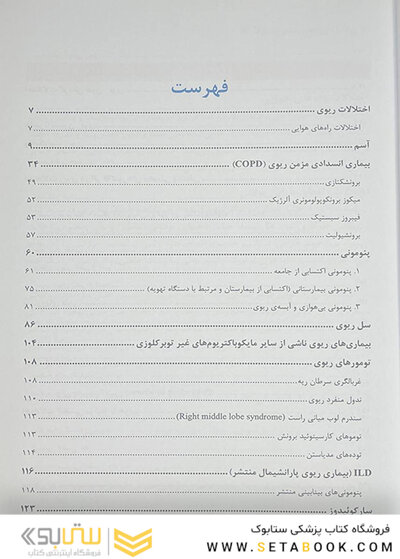 فهرست
اختلالات ریوی ۷
اختلالات راه‌های هوایی ۷
آسم ۹
بیماری انسدادی مزمن ریوی (COPD) ۳۴
برونشکتازی ۴۹
میکوز برونکوپولومونری آلرژیک ۵۲
فیبروز سیستیک ۵۳
برونشیولیت ۵۷
پنومونی ۶۰
۱. پنومونی اکتسابی از جامعه ۶۱
۲. پنومونی بیمارستانی (اکتسابی از بیمارستان و مرتبط با دستگاه تهویه) ۷۵
۳. پنومونی بی‌هوازی و آبسه‌ی ریوی ۸۱
سل ریوی ۸۶
بیماری‌های ریوی ناشی از سایر مایکوباکتریوم‌های غیر توبرکلوزی ۱۰۴
تومورهای ریوی ۱۰۸
غربالگری سرطان ریه ۱۰۸
ندول منفرد ریوی ۱۱۰
سندرم لوب میانی راست (Right middle lobe syndrome) ۱۱۳
توموهای کارسینوئید برونش ۱۱۳
توده‌های مدیاستن ۱۱۴
ILD (بیماری ریوی پارانشیمال منتشر) ۱۱۶
پنومونی‌های بینابینی منتشر ۱۱۸
سارکوئیدوز ۱۲۳
فروشگاه کتاب پزشکی ستابوک
WWW.SETABOOK.COM
ستابوک
فروشگاه اینترنتی کتاب